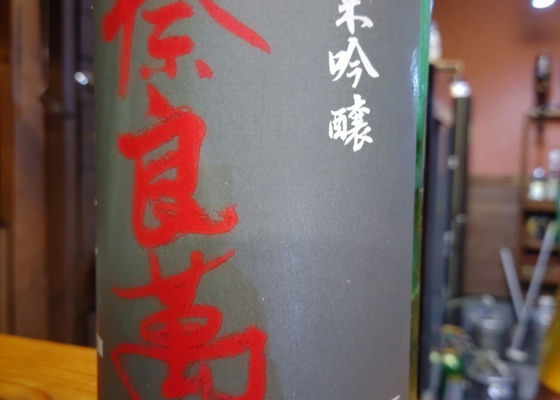 米吟醸
奈良萬